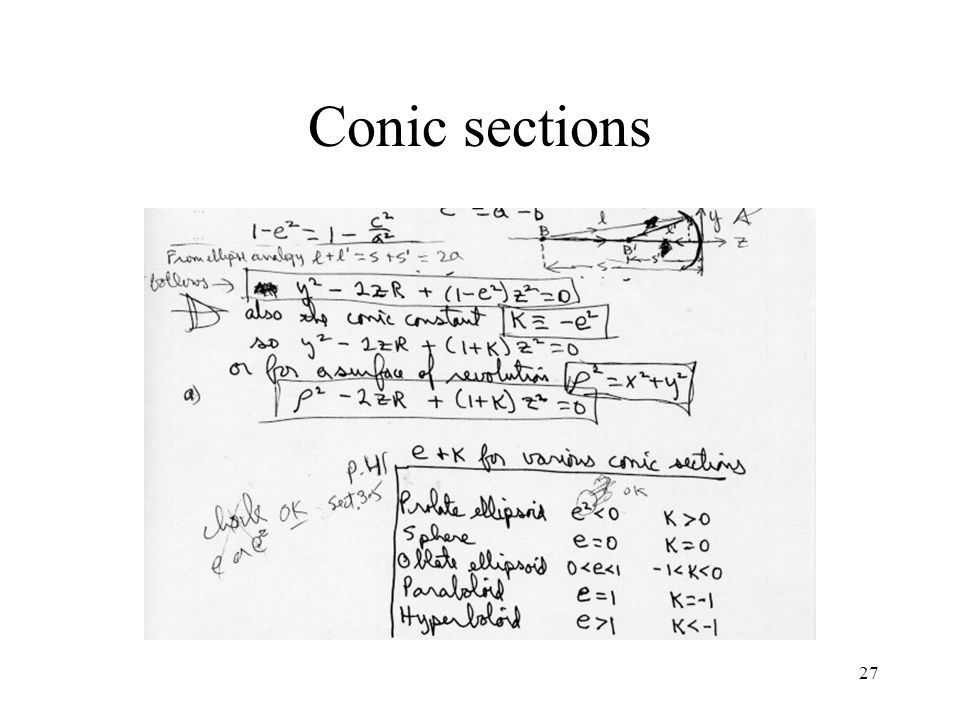 Conic sections
c = a - b
1-e² = 1 - c²/a²
l y
B B' l' z
From ellipse analogy l+l' = s+s' = 2a
s s'
follows → y² - 2zR + (1-e²)z² = 0
also the conic constant K ≡ -e²
so y² - 2zR + (1+K)z² = 0
or for a surface of revolution ρ² = x²+y²
a) ρ² - 2zR + (1+K)z² = 0
e + K for various conic sections
p.41
sect. 3.5
check OK
e or e²
OK
Prolate ellipsoid e²<0 K>0
Sphere e=0 K=0
Oblate ellipsoid 0<e<1 -1<K<0
Paraboloid e=1 K=-1
Hyperboloid e>1 K<-1
27